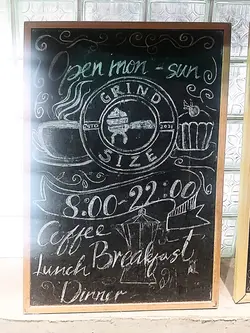 Open mon - sun
GRIND
SIZE
8:00-22:00
Coffee
Breakfast
Lunch
Dinner